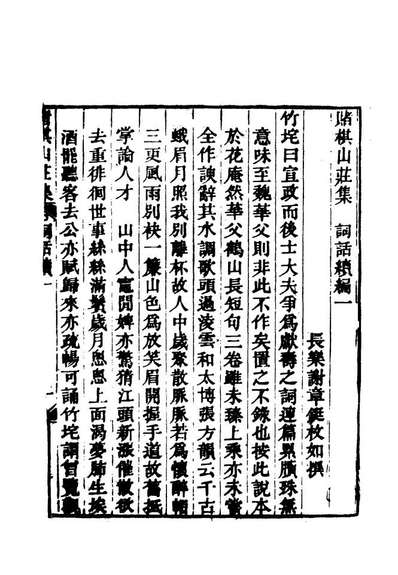 賭棋山莊集　詞話續編一
長樂謝章鋌枚如撰
竹垞曰宣政而後士大夫爭爲獻壽之詞連篇累牘殊無
意味至魏華父則非此不作矣置之不錄也按此說本
於花庵然華父鶴山長短句三卷雖未臻上乘亦未嘗
全作諛辭其水調歌頭過淩雲和太博張方韻云千古
蛾眉月照我別離杯故人中歲聚散脈脈若爲懷醉帽
三更風雨別袂一簾山色爲放笑眉開握手道故舊抵
掌論人才　山中人竈間婢亦驚猜江頭新漲催散欲
去重徘徊世事絲絲滿鬢歲月悤悤上面渴夢肺生埃
酒罷聽客去公亦賦歸來亦疏暢可誦竹垞謂
山莊集　詞話續一